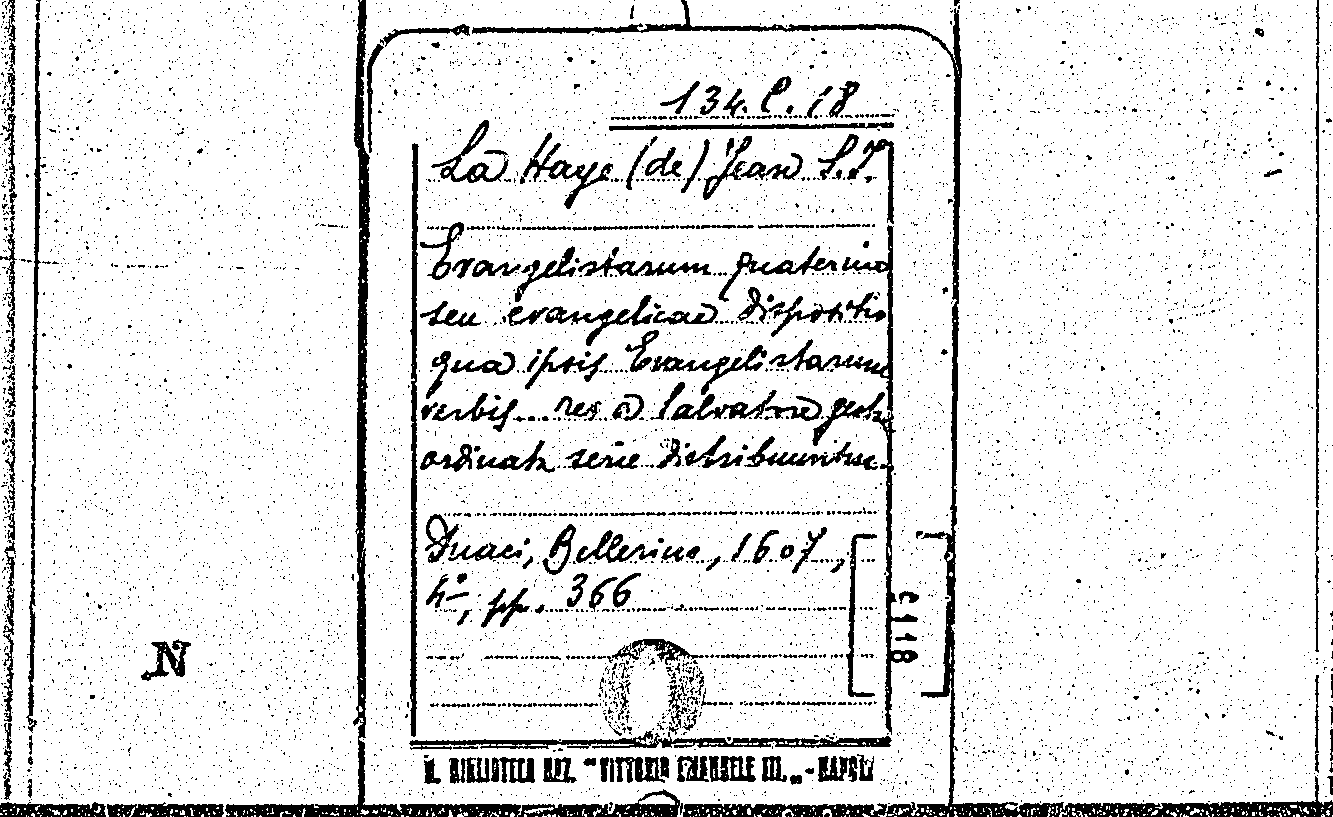 134. C. 18
La Haye (de) Jean S.J.
Evangelistarum quaternio
seu evangelicae dispositio
qua ipsis Evangelistarum
verbis... res a Salvatore gesta
ordinata serie distribuuntur.
Duaci, Bellerius, 1607,
4°, pp. 366
C 118
N
R. BIBLIOTECA NAZ. "VITTORIO EMANUELE III." - NAPOLI